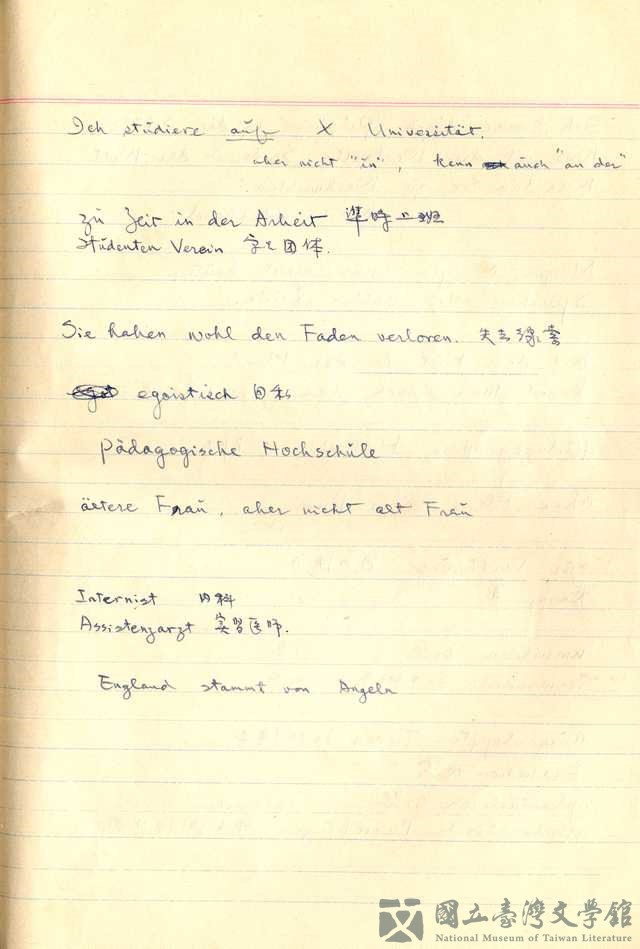 Ich studiere auf X Universität.
aber nicht "in", kann auch "an der"
zu Zeit in der Arbeit 準時上班
Studenten Verein 学生团体.
Sie haben wohl den Faden verloren. 失去線索
egoistisch 自私
Pädagogische Hochschule
ältere Frau, aber nicht alt Frau
Internist 内科
Assistenzarzt 實習医師.
England stammt von Angeln
國立臺灣文學館
National Museum of Taiwan Literature